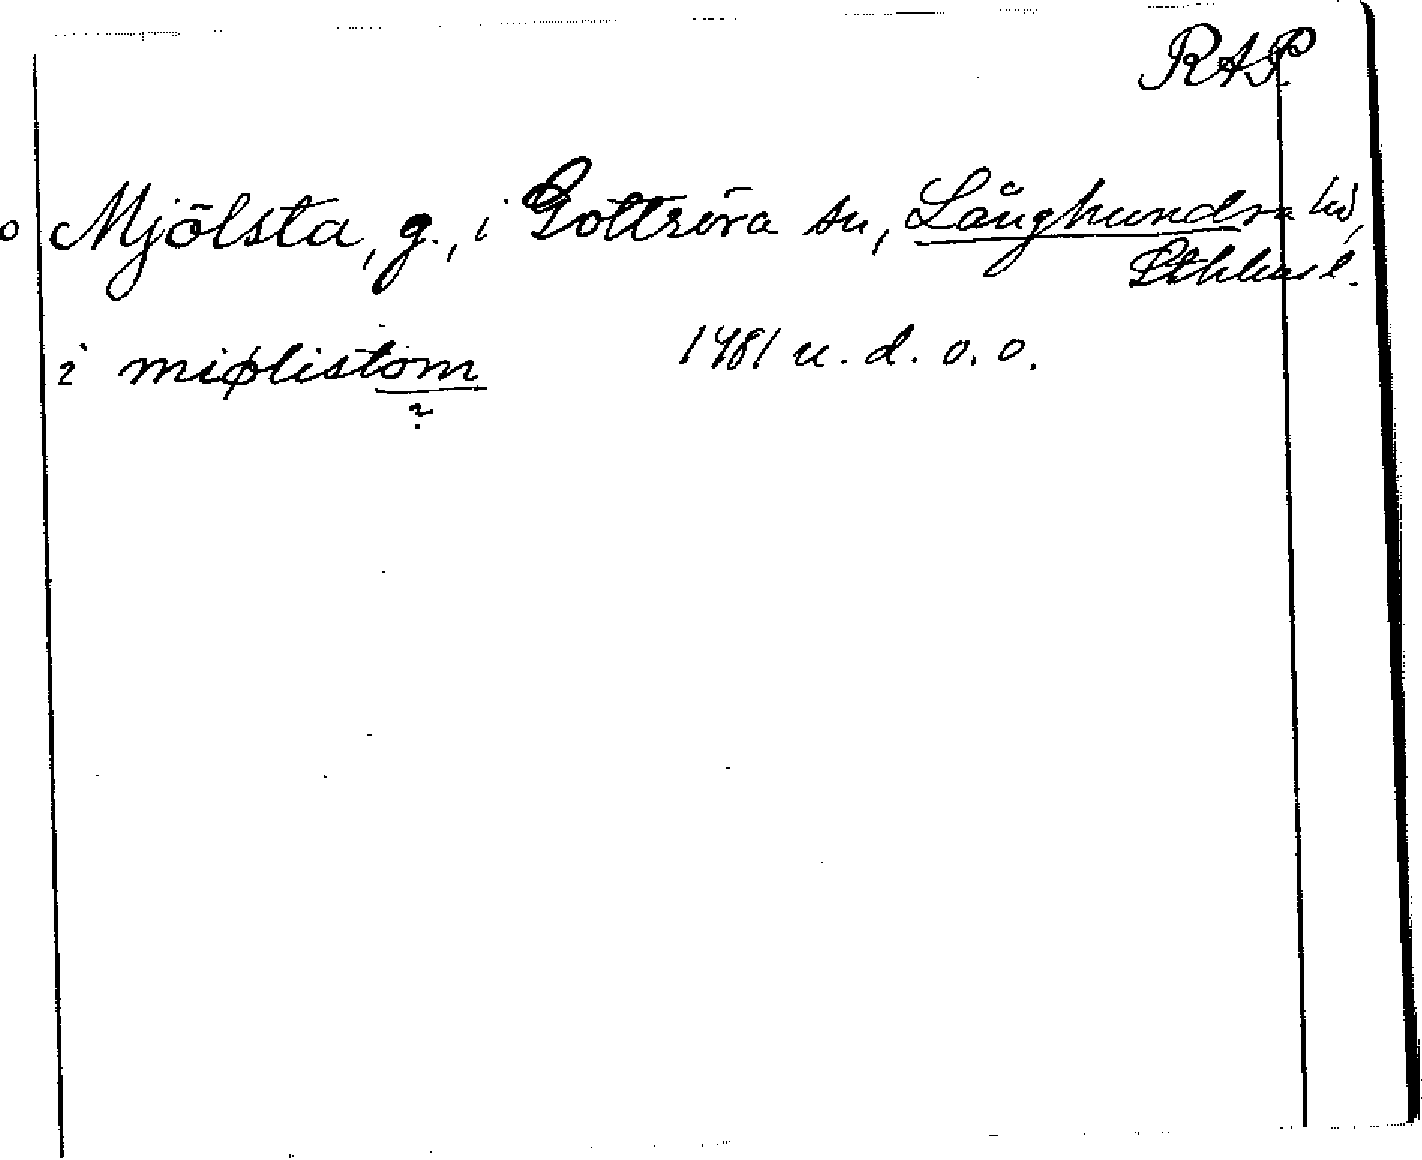 RAP.
o Mjölsta, g., i Gottröra sn, Långhundra hd,
Sthlms l.
i miølistom 1481 u. d. o. o.
?